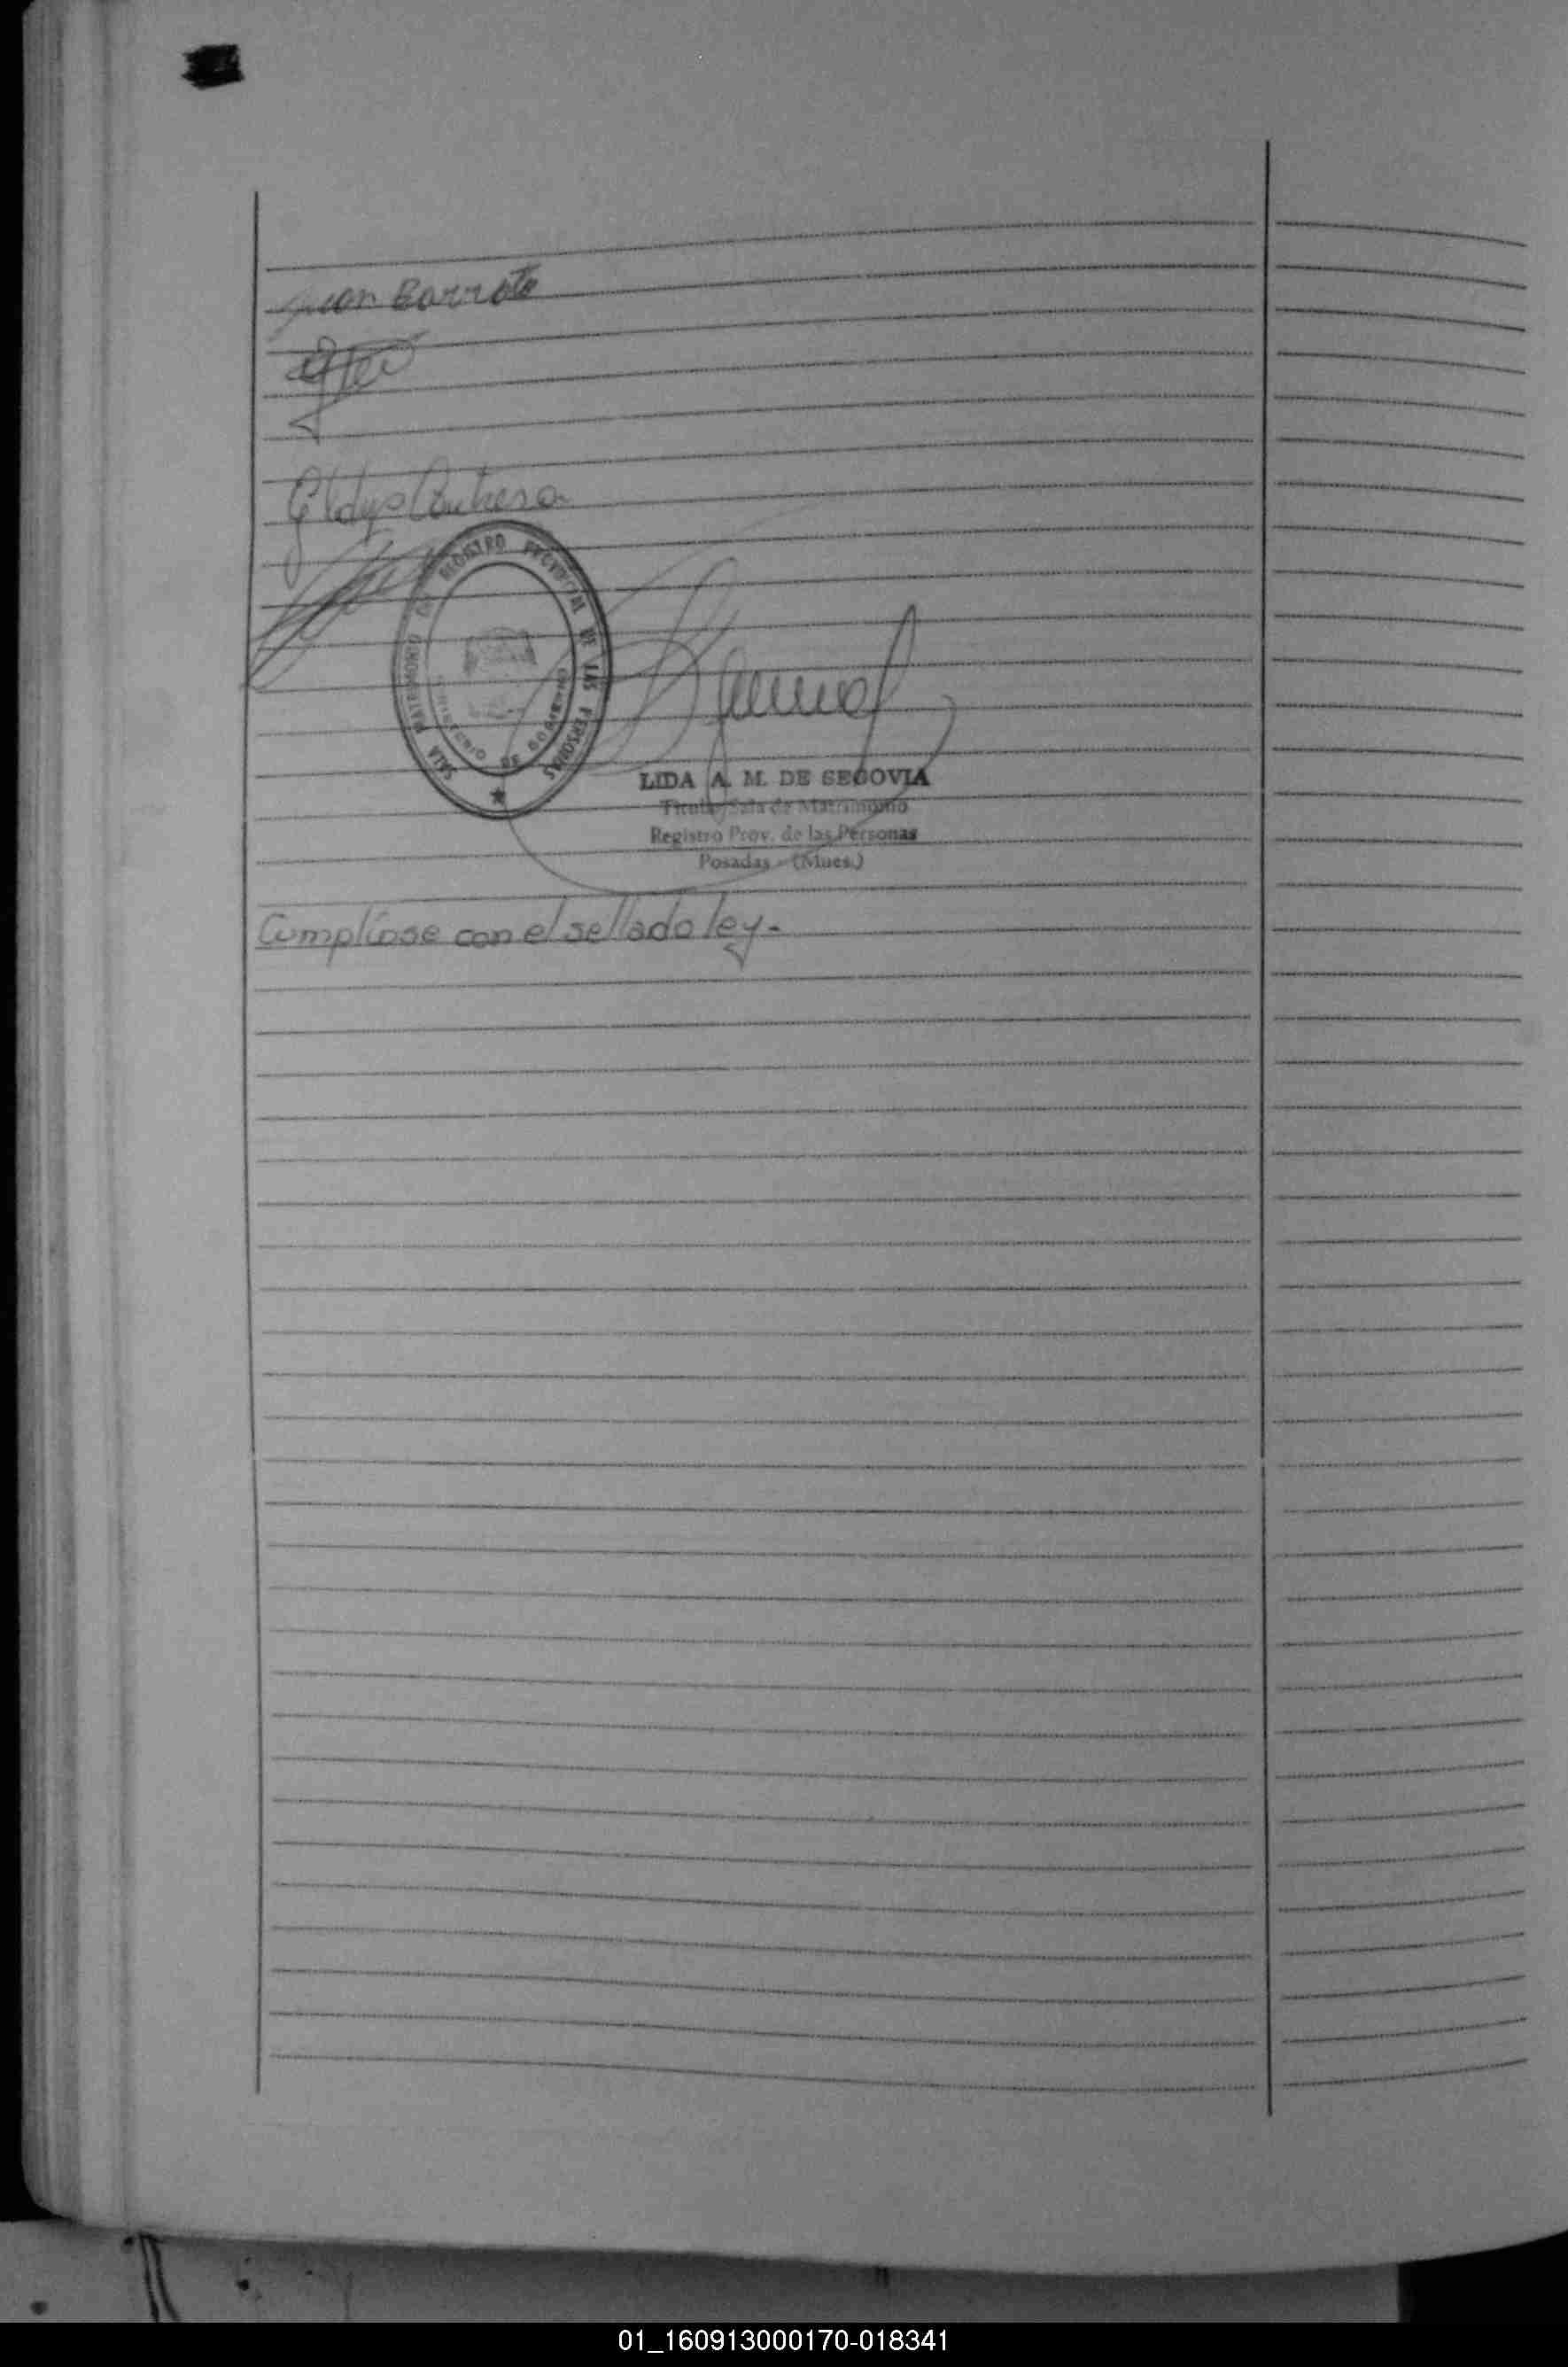 Juan Barroto
Gldys
SALA MATRIMONIO DEL REGISTRO PROVINCIAL DE LAS PERSONAS
MINISTERIO DE GOBIERNO
LIDA A. M. DE SEGOVIA
Titular Sala de Matrimonio
Registro Prov. de las Personas
Posadas - (Mnes.)
Cumplíose con el sellado ley.-
01_160913000170-018341